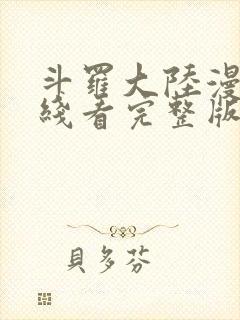 斗羅大陸漫
綫看完整版
貝多芬